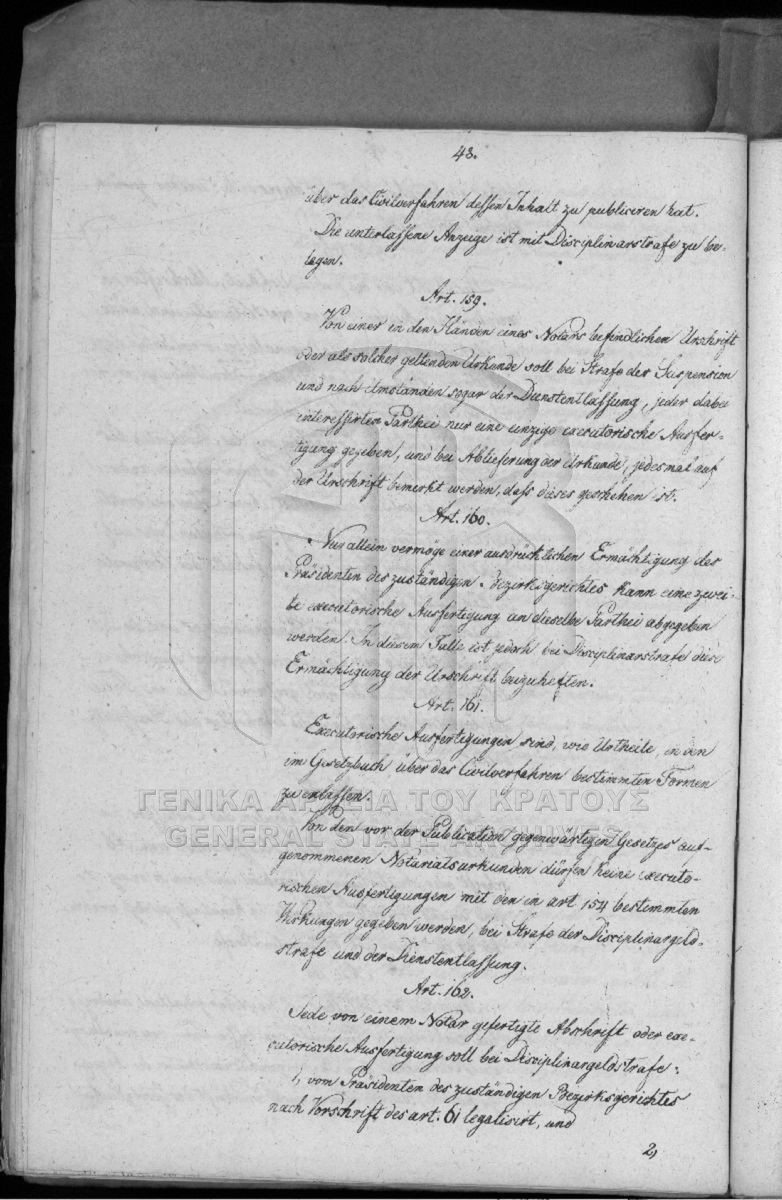 43.
über das Civilverfahren dessen Inhalt zu publiciren hat.
Die unterlassene Anzeige ist mit Disciplinarstrafe zu be-
legen.
Art. 159.
Von einer in den Händen eines Notars befindlichen Urschrift
oder als solcher geltenden Urkunde soll bei Strafe der Suspension
und nach Umständen sogar der Dienstentlassung, jeder dabei
interessirten Parthei nur eine einzige executorische Ausfer-
tigung gegeben, und bei Ablieferung der Urkunde, jedesmal auf
der Urschrift bemerkt werden, daß dieses geschehen ist.
Art. 160.
Nur allein vermöge einer ausdrücklichen Ermächtigung des
Präsidenten des zuständigen Bezirksgerichtes kann eine zwei-
te executorische Ausfertigung an dieselbe Parthei abgegeben
werden. In diesem Falle ist jedoch bei Disciplinarstrafe diese
Ermächtigung der Urschrift beizuheften.
Art. 161.
Executorische Ausfertigungen sind, wie Urtheile, in den
im Gesetzbuch über das Civilverfahren bestimmten Formen
zu erlassen.
Von den vor der Publication gegenwärtigen Gesetzes auf-
genommenen Notariatsurkunden dürfen keine executo-
rischen Ausfertigungen mit den in art 154 bestimmten
Wirkungen gegeben werden, bei Strafe der Disciplinargeld-
strafe und der Dienstentlassung.
Art. 162.
Jede von einem Notar gefertigte Abschrift oder exe-
cutorische Ausfertigung soll bei Disciplinargeldstrafe:
1, vom Präsidenten des zuständigen Bezirksgerichtes
nach Vorschrift des art. 61 legalisirt, und
2,
ΓΕΝΙΚΑ ΑΡΧΕΙΑ ΤΟΥ ΚΡΑΤΟΥΣ
GENERAL STATE ARCHIVES